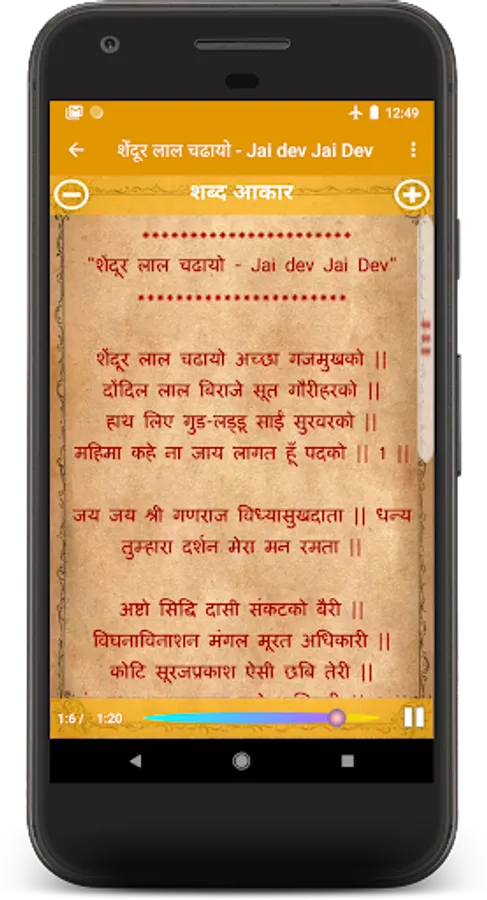 12:49
शेंदूर लाल चढायो - Jai dev Jai Dev
शब्द आकार
"शेंदूर लाल चढायो - Jai dev Jai Dev"
शेंदूर लाल चढायो अच्छा गजमुखको ||
दोंदिल लाल बिराजे सूत गौरीहरको ||
हाथ लिए गुड-लड्डू साई सुरवरको ||
महिमा कहे ना जाय लागत हूँ पदको || 1 ||
जय जय श्री गणराज विध्यासुखदाता || धन्य
तुम्हारा दर्शन मेरा मन रमता ||
अष्टो सिद्धि दासी संकटको बैरी ||
विघनाविनाशन मंगल मूरत अधिकारी ||
कोटि सूरजप्रकाश ऐसी छबि तेरी ||
1:6 / 1:20